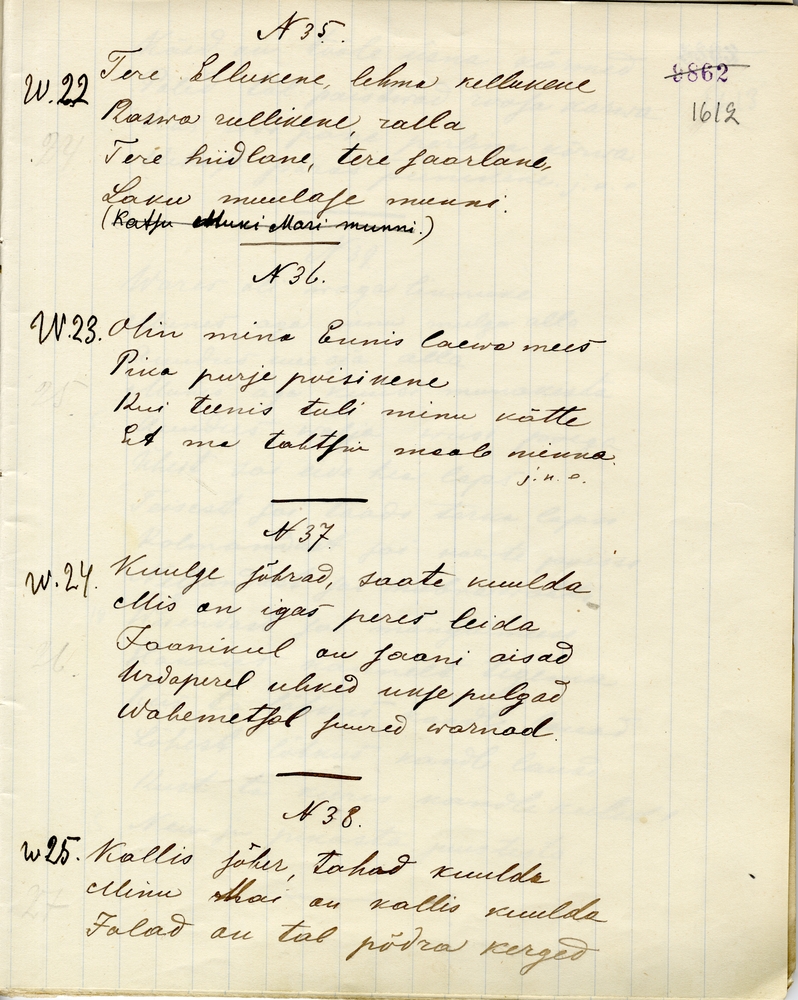 N 35.
8862
1612
W. 22
Tere Ellukene, lehma kellukene
Raswa rullikene, ralla
Tere hiidlane, tere saarlane,
Laku muulase munni.
(Katsu Muki Mari munni.)
N 36.
W. 23.
Olin mina Ennis laewa mees
Pika purje poisikene
Kui teenis tuli minu kätte
Et ma tahtsin maale minna.
j. n. e.
N 37.
W. 24.
Kuulge sõbrad, saate kuulda
Mis on igas peres leida
Jaanikul on saani aisad
Urdaperel uhked ukse pulgad
Wahemetsal suured warnad.
N 38.
W 25.
Kallis sõber, tahad kuulda
Minu Mai on kallis kuulda
Jalad on tal põdra kerged